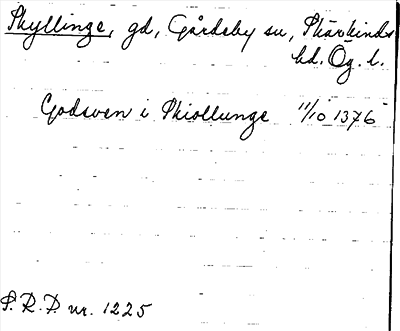 Skyllinge, gd, Gårdeby sn, Skärkinds
hd. Ög. l.
Godsven i Skiollunge 11/10 1376
S. R. P. nr. 1225